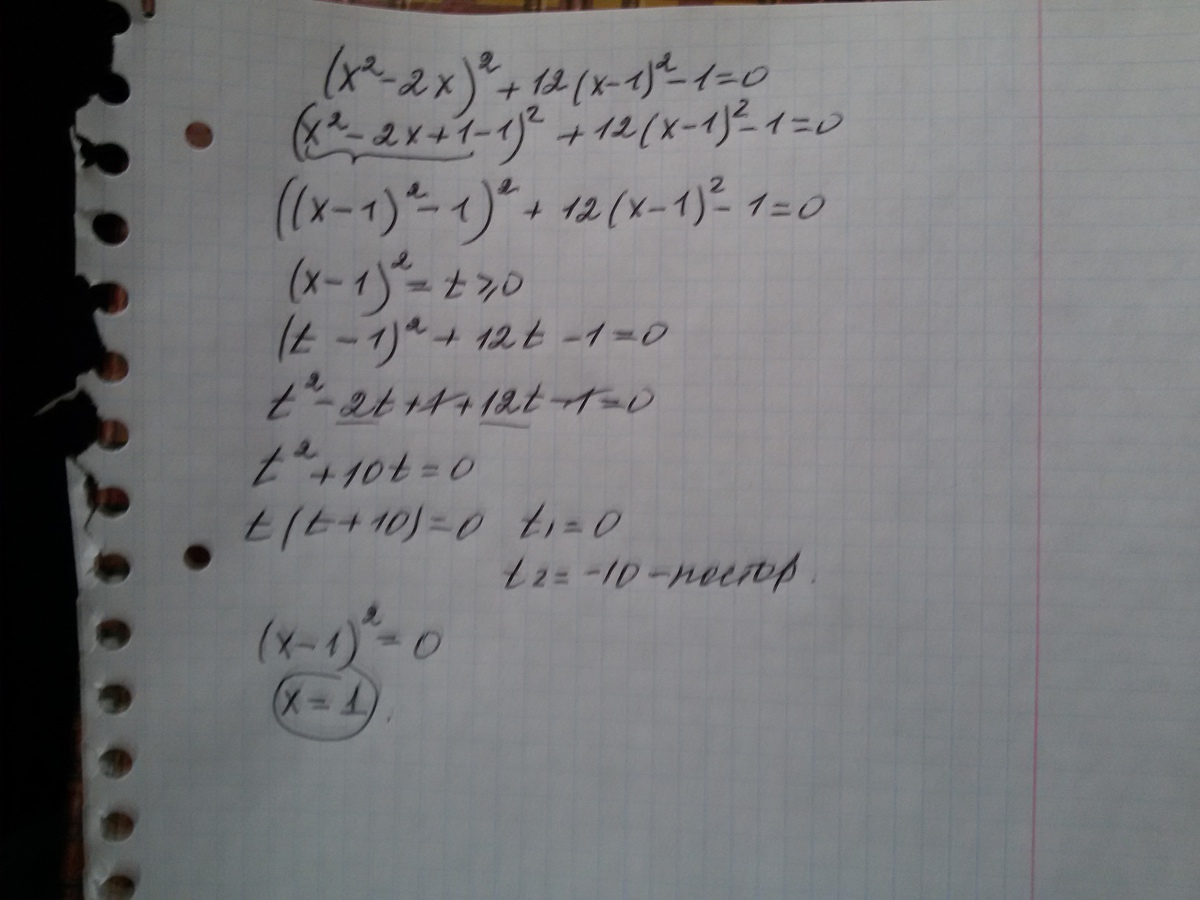 (x² - 2x)² + 12(x-1)² - 1 = 0
(x² - 2x + 1 - 1)² + 12(x-1)² - 1 = 0
((x-1)² - 1)² + 12(x-1)² - 1 = 0
(x-1)² = t ⩾ 0
(t - 1)² + 12t - 1 = 0
t² - 2t + 1 + 12t - 1 = 0
t² + 10t = 0
t(t+10) = 0 t₁ = 0
t₂ = -10 - постор.
(x-1)² = 0
x = 1.